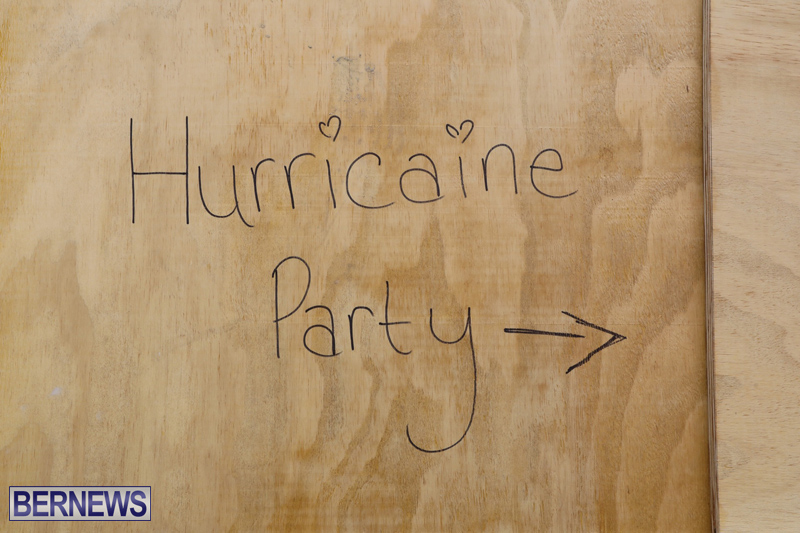 Hurricaine
Party →
BERNEWS